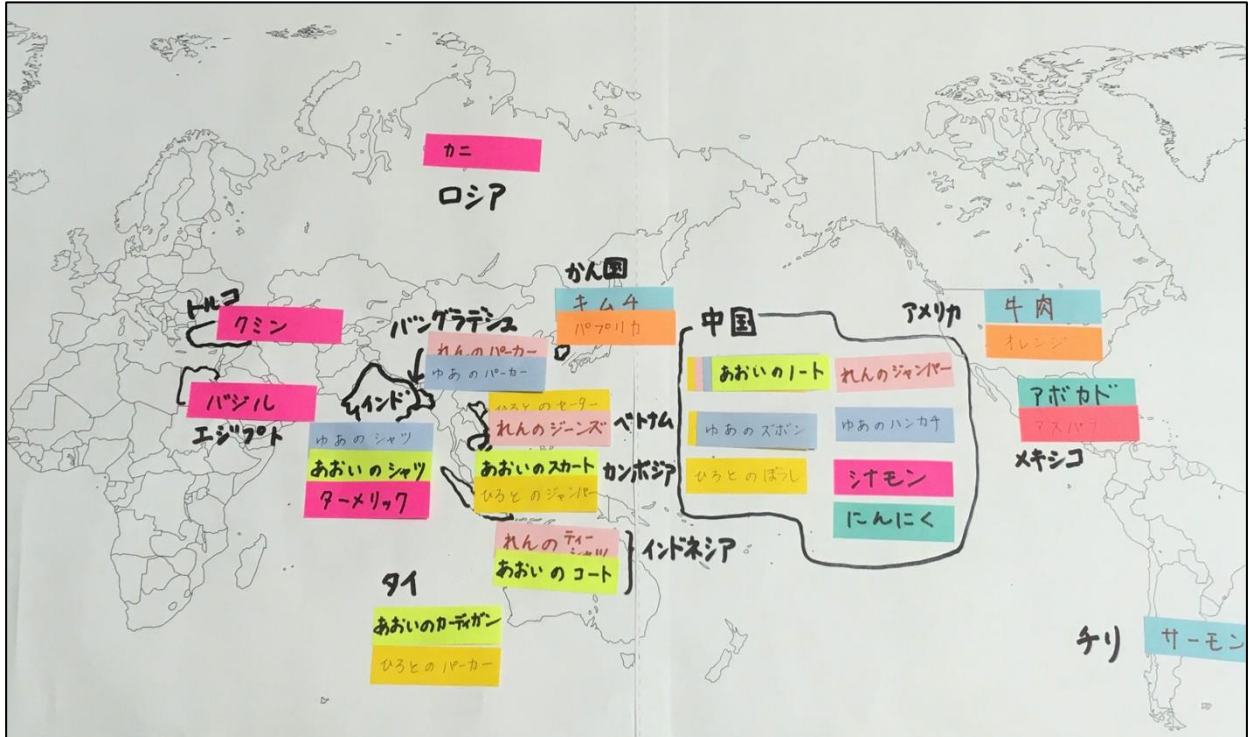 カニ
ロシア
かん国
キムチ
パプリカ
トルコ
クミン
バジル
エジプト
バングラデシュ
れんのパーカー
ゆあのパーカー
インド
ゆあのシャツ
あおいのシャツ
ターメリック
ひろとのセーター
れんのジーンズ
ベトナム
あおいのスカート
カンボジア
ひろとのジャンパー
れんのティーシャツ
あおいのコート
インドネシア
タイ
あおいのカーディガン
ひろとのパーカー
中国
あおいのノート
れんのジャンパー
ゆあのズボン
ゆあのハンカチ
ひろとのぼうし
シナモン
にんにく
アメリカ
牛肉
オレンジ
アボカド
アスパラ
メキシコ
チリ
サーモン